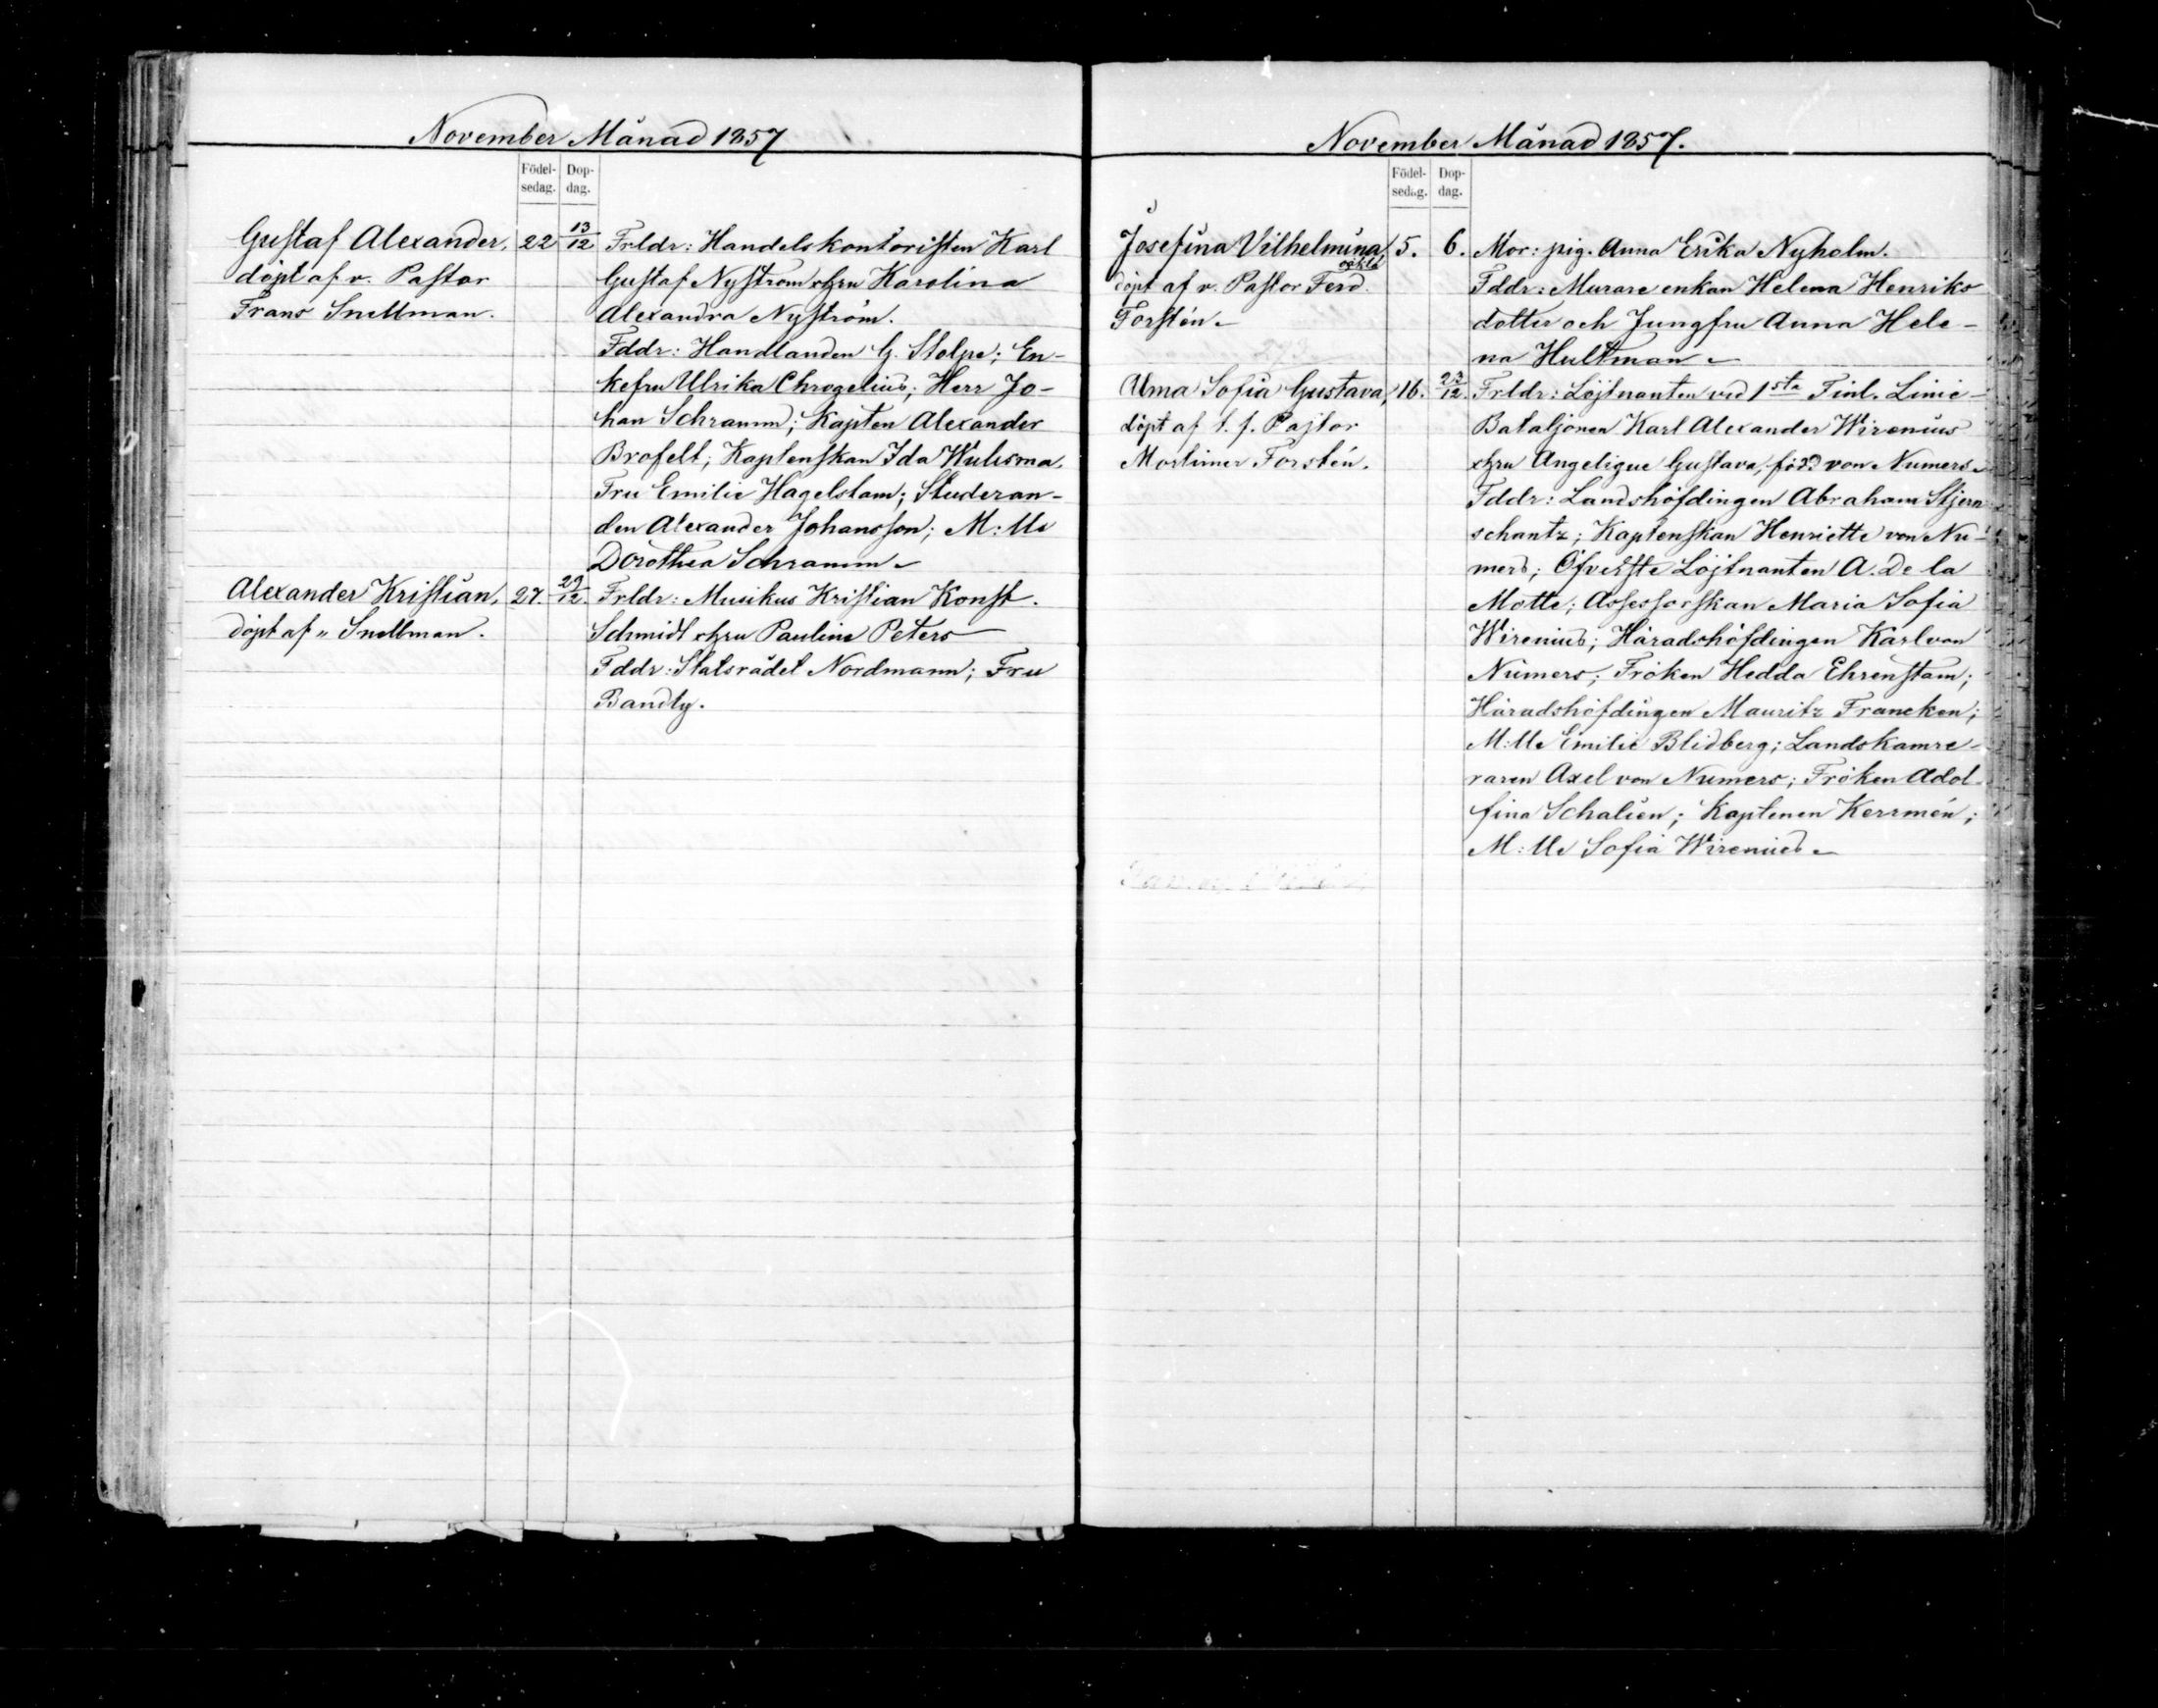 November Månad 1857
Födel-
sedag.
Dop-
dag.
Gustaf Alexander,
döpt af v. Pastor
Frans Snellman.
22
13
12
Frldr: Handelskontoristen Karl
Gustaf Nyström o. hu Karolina
Alexandra Nyström.
Fddr: Handlanden G. Stolpe; En-
kefru Ulrika Chrogelius; Herr Jo-
han Schramm; Kapten Alexander
Brofelt; Kaptenskan Ida
Fru Emilie Hagelstam; Studeran-
den Alexander Johansson; M:lle
Dorothea Schramm
Alexander Kristian,
döpt af " Snellman.
27.
29
12.
Frldr: Musikus Kristian Konst.
Schmidt o. hu Pauline Peters
Fddr: Statsrådet Nordmann; Fru
Bandly.
November Månad 1857.
Födel-
sedag.
Dop-
dag.
Josefina Vilhelmina,
oäkta
döpt af v. Pastor Ferd.
Forstén
5.
6.
Mor: pig. Anna Erika Nyholm.
Fddr: Murare enkan Helena Henriks
dotter och Jungfru Anna Hele-
na Hultman
Alma Sofia Gustava,
döpt af t. f. Pastor
Mortimer Forstén.
16.
27
12.
Frldr: Löjtnanten vid 1sta Finl. Linie-
Bataljonen Karl Alexander Wirenius
o. hu Angelique Gustava, född von Numers
Fddr: Landshöfdingen Abraham Stjern
schantz; Kaptenskan Henriette von Nu-
mers; Öfverste Löjtnanten A. De la
Motte; Assessorskan Maria Sofia
Wirenius; Häradshöfdingen Karl von
Numers; Fröken Hedda Ehrenstam;
Häradshöfdingen Mauritz Francken;
M:lle Emilie Blidberg; Landskamre-
raren Axel von Numers; Fröken Adol-
fina Schalien; Kaptenen Kerrmén;
M:lle Sofia Wirenius